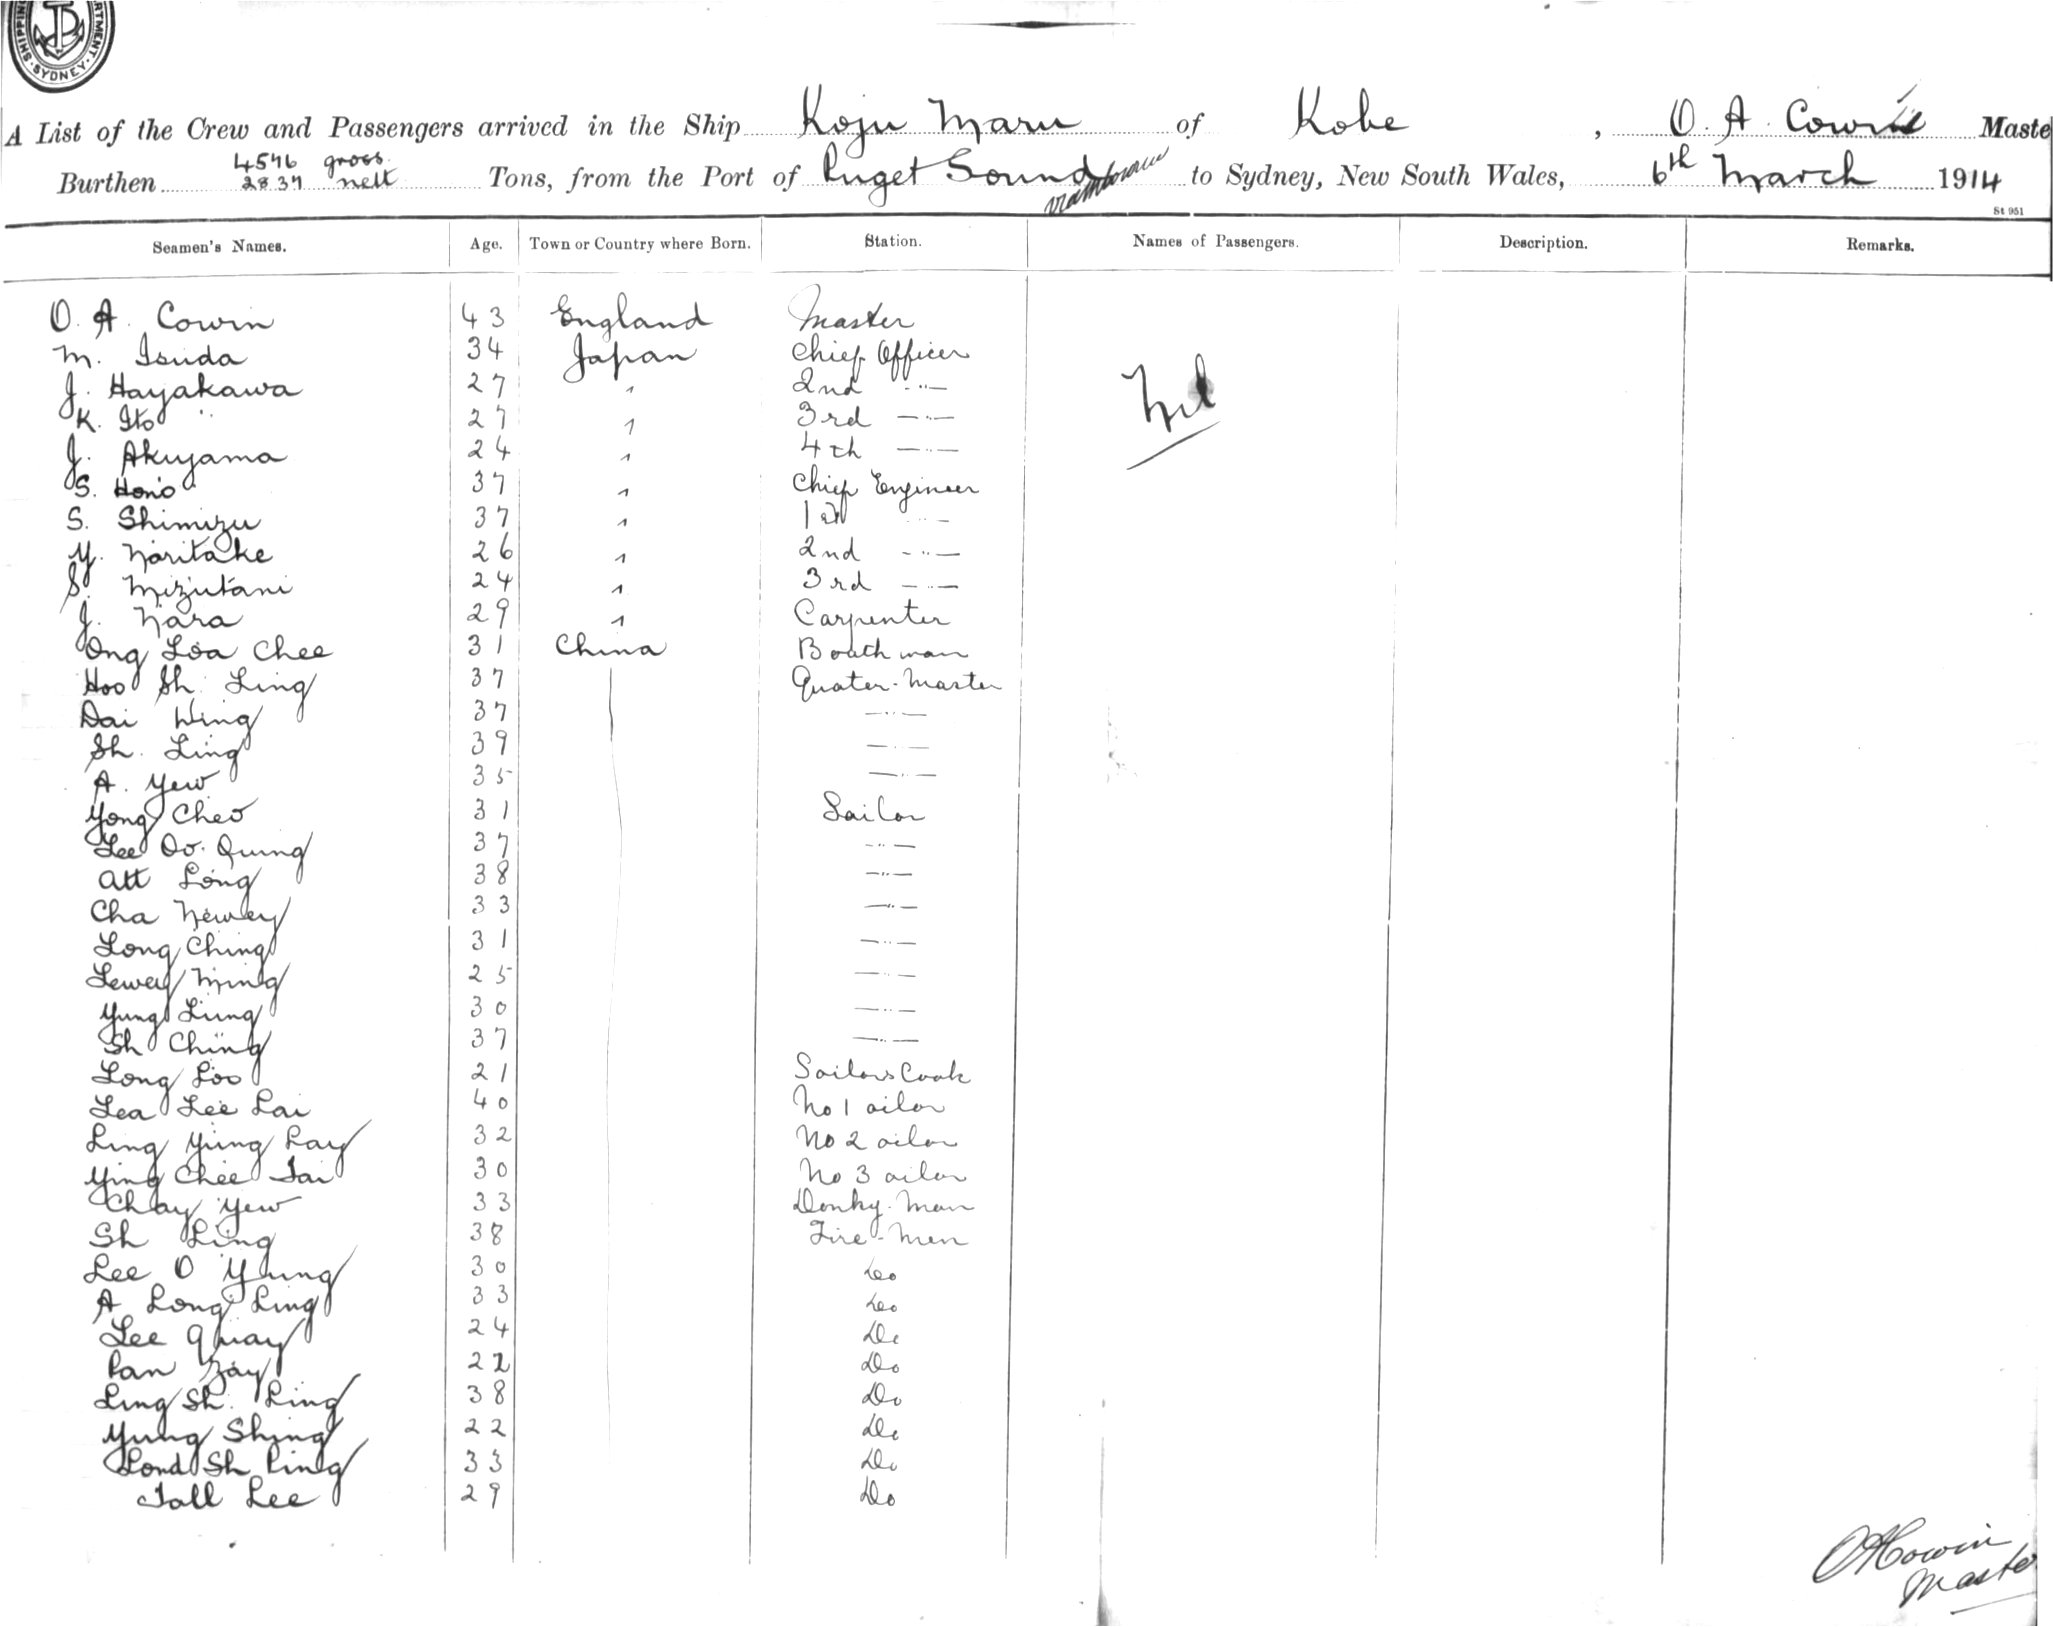 SHIPPING DEPARTMENT. SYDNEY.
A List of the Crew and Passengers arrived in the Ship Koju Maru of Kobe, O. A. Cowin Maste
Burthen 4576 gross 2837 nett Tons, from the Port of Puget Sound to Sydney, New South Wales, 6th March 1914
St 951
Seamen's Names. Age. Town or Country where Born. Station. Names of Passengers. Description. Remarks.
O. A. Cowin 43 England Master
M. Tsuda 34 Japan Chief Officer
J. Hayakawa 27 " 2nd —"— Nil
K. Ito 27 " 3rd —"—
J. Akiyama 24 " 4th —"—
S. Hono 37 " Chief Engineer
S. Shimizu 37 " 1st —"—
Y. Noritake 26 " 2nd —"—
S. Mizutani 24 " 3rd —"—
J. Nara 29 " Carpenter
Ong Loa Chee 31 China Boathman
Hoo Sh. Ling 37 Quater-Master
Dai Wing 37 —"—
Sh. Ling 39 —"—
A. Yew 35 —"—
Yong Cheo 31 Sailor
Lee Oo. Quing 37 —"—
Att Long 38 —"—
Cha Newey 33 —"—
Long Ching 31 —"—
Lewey Ming 25 —"—
Yung Ling 30 —"—
Sh Ching 37 —"—
Long Loo 21 Sailors Cook
Lea Lee Lai 40 No 1 oilor
Ling Yung Lay 32 No 2 oilor
Ying Chee Tai 30 No 3 oilor
Chay Yew 33 Donky-Man
Sh Ling 38 Fire-Men
Lee O Yung 30 Do
A Long Ling 33 Do
Lee Quay 24 Do
Pan Zay 22 Do
Ling Sh. Ling 38 Do
Yung Shing 22 Do
Lond Sh Ling 33 Do
Tall Lee 29 Do
O A Cowin
Master